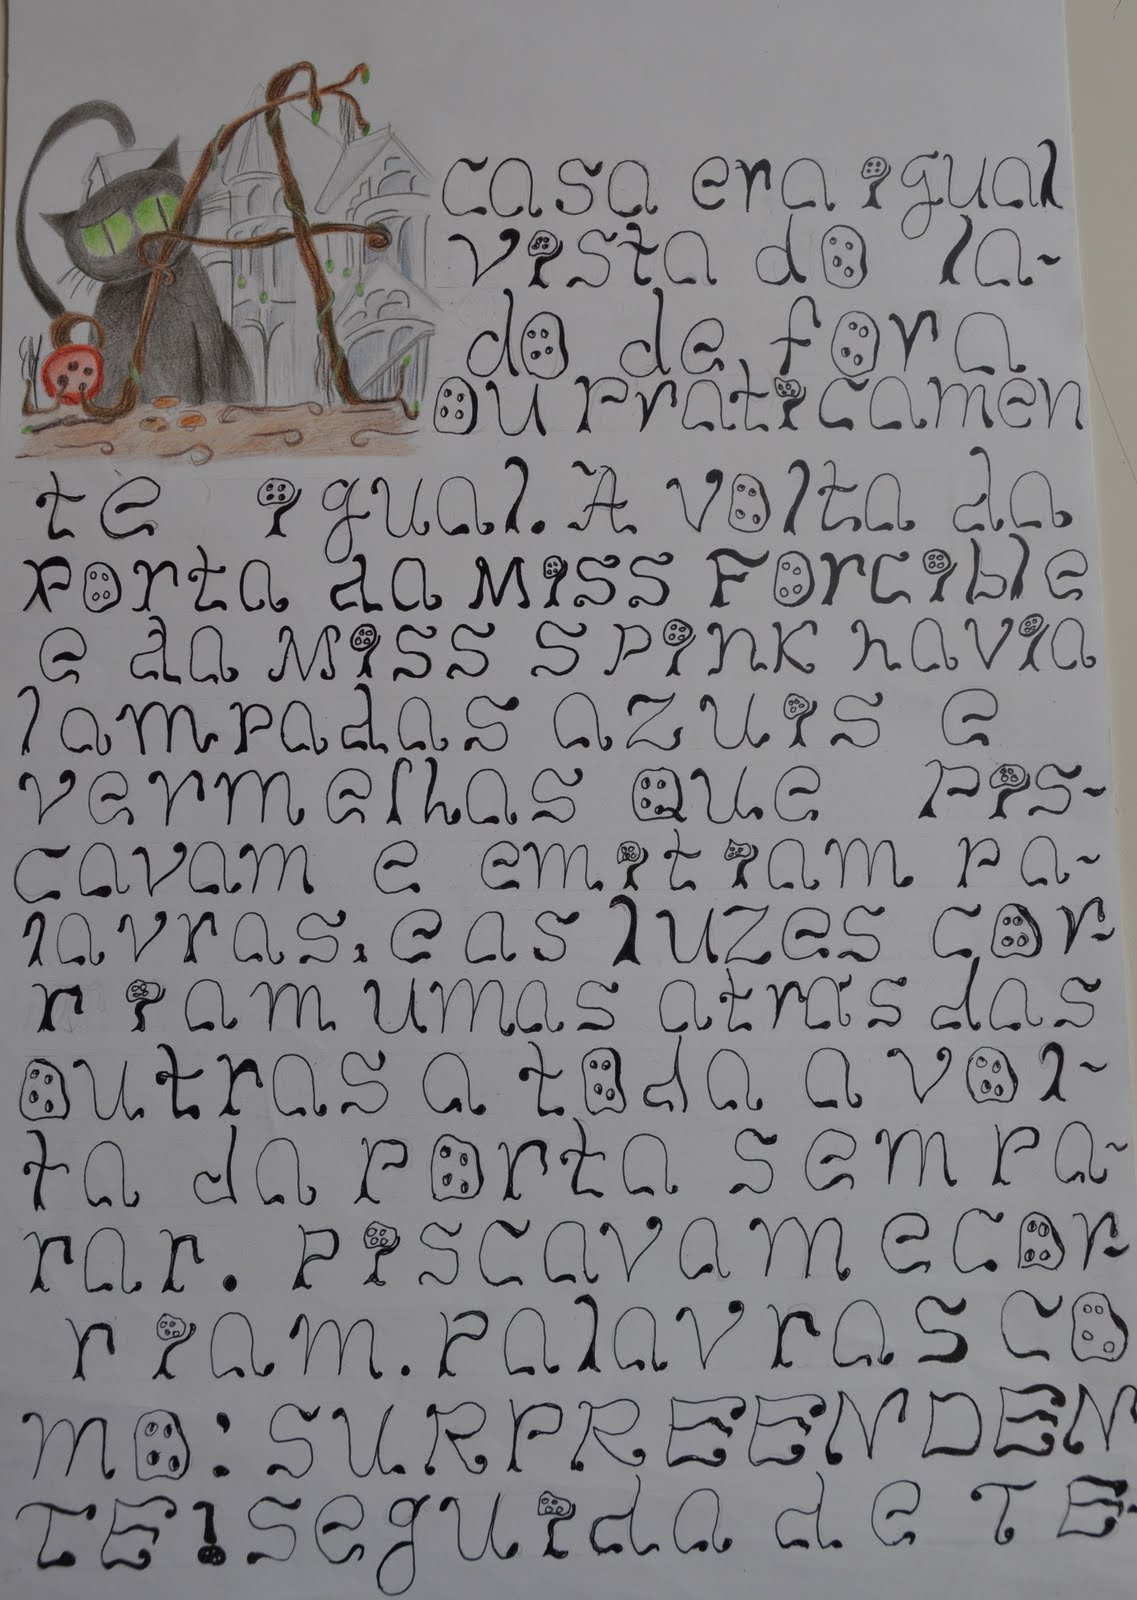 A casa era igual
vista do la-
do de fora
ou praticamen
te igual. A volta da
porta da Miss Forcible
e da Miss Spink havia
lampadas azuis e
vermelhas que pis-
cavam e emitiam pa-
lavras, e as luzes cor-
riam umas atrás das
outras a toda a vol-
ta da porta sem pa-
rar. Piscavam e cor-
riam. Palavras co
mo: SURPREENDEN
TE! seguida de TE-